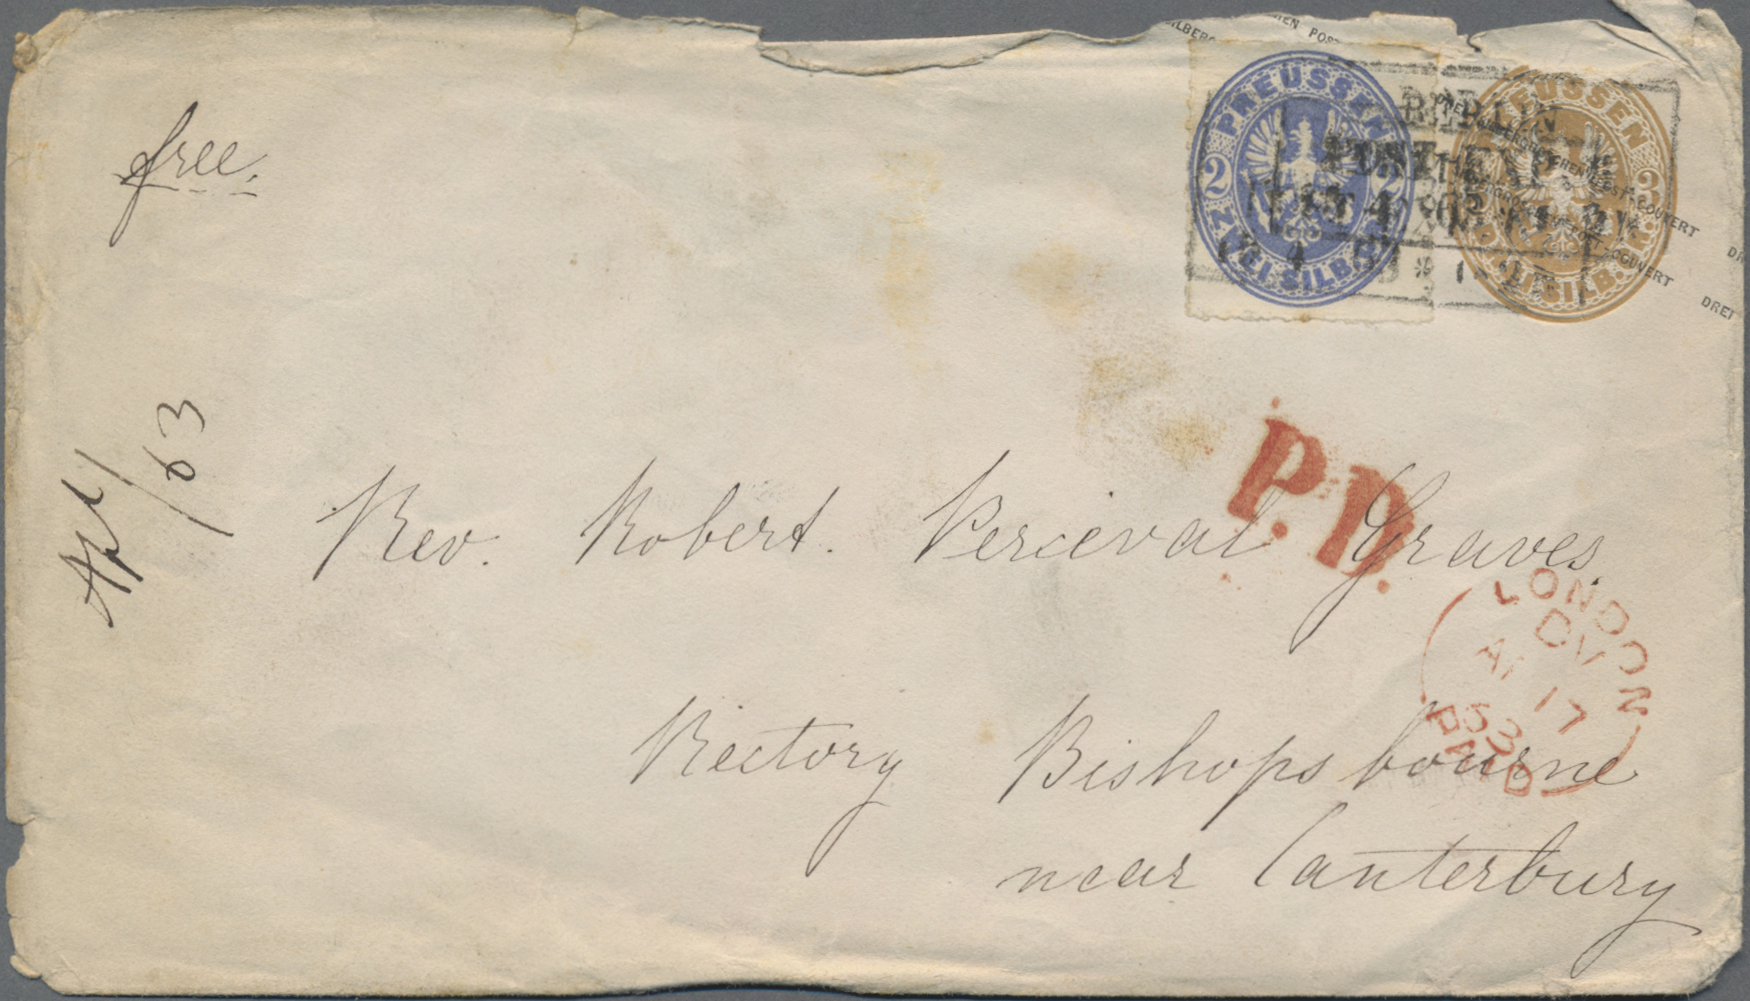 free.
PREUSSEN
2 2
ZWEI SILB.GR.
PREUSSEN
3
DREI SILB.GR.
BERLIN
POST
P.D.
Apl/63
Rev. Robert Perceval Graves
LONDON
DV
AP 17
63
PAID
Rectory Bishopsbourne
near Canterbury